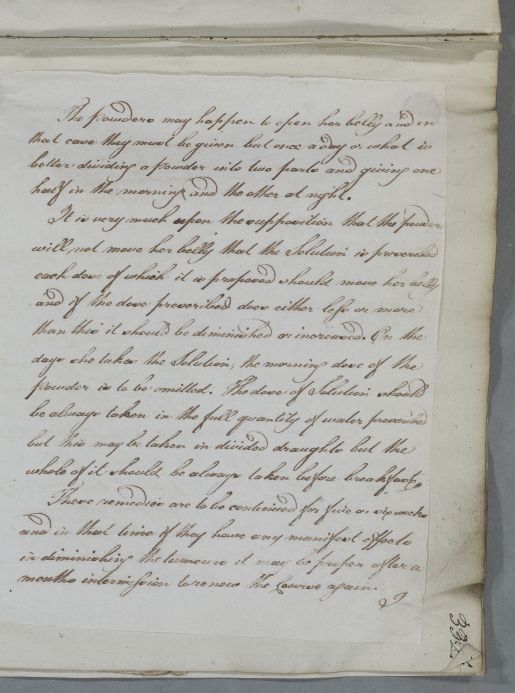 The powders may happen to open her belly and in
that case they must be given but once a day or what is
better dividing a powder into two parts and giving one
half in the morning and the other at night.
It is very much upon the supposition that the powder
will not move her belly that the Solution is prescribed
each dose of which it is proposed should move her belly
and if the dose prescribed does either less or more
than this it should be diminished or increased. On the
days she takes the Solution, the morning dose of the
powder is to be omitted. The dose of Solution should
be always taken in the full quantity of water prescribed
but this may be taken in divided draughts but the
whole of it should be always taken before breakfast.
These remedies are to be continued for five or six weeks
and in that time if they have any manifest effects
in diminishing the tumours it may be proper after a
months intermission to renew the Course again.